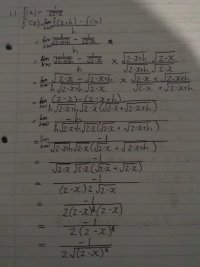 (c) f(x) = 1/√2-x
f'(x) = lim h→0 f(x+h) - f(x) / h
= lim h→0 1/√2-x+h - 1/√2-x / h ×
= lim h→0 1/√2-x+h - 1/√2-x / h × √2-x+h √2-x / √2-x+h √2-x
= lim h→0 √2-x - √2-x+h / h√2-x+h √2-x × √2-x + √2-x+h / √2-x + √2-x+h
= lim h→0 (2-x) - (2-x+h) / h√2-x+h √2-x (√2-x + √2-x+h)
= lim h→0 -h / h√2-x+h √2-x (√2-x + √2-x+h)
= lim h→0 -1 / √2-x+h √2-x (√2-x + √2-x+h)
= -1 / √2-x √2-x (√2-x + √2-x)
= -1 / (2-x) 2 √2-x
= -1 / 2(2-x)(2-x)
= -1 / 2(2-x)
= -1 / 2√(2-x)